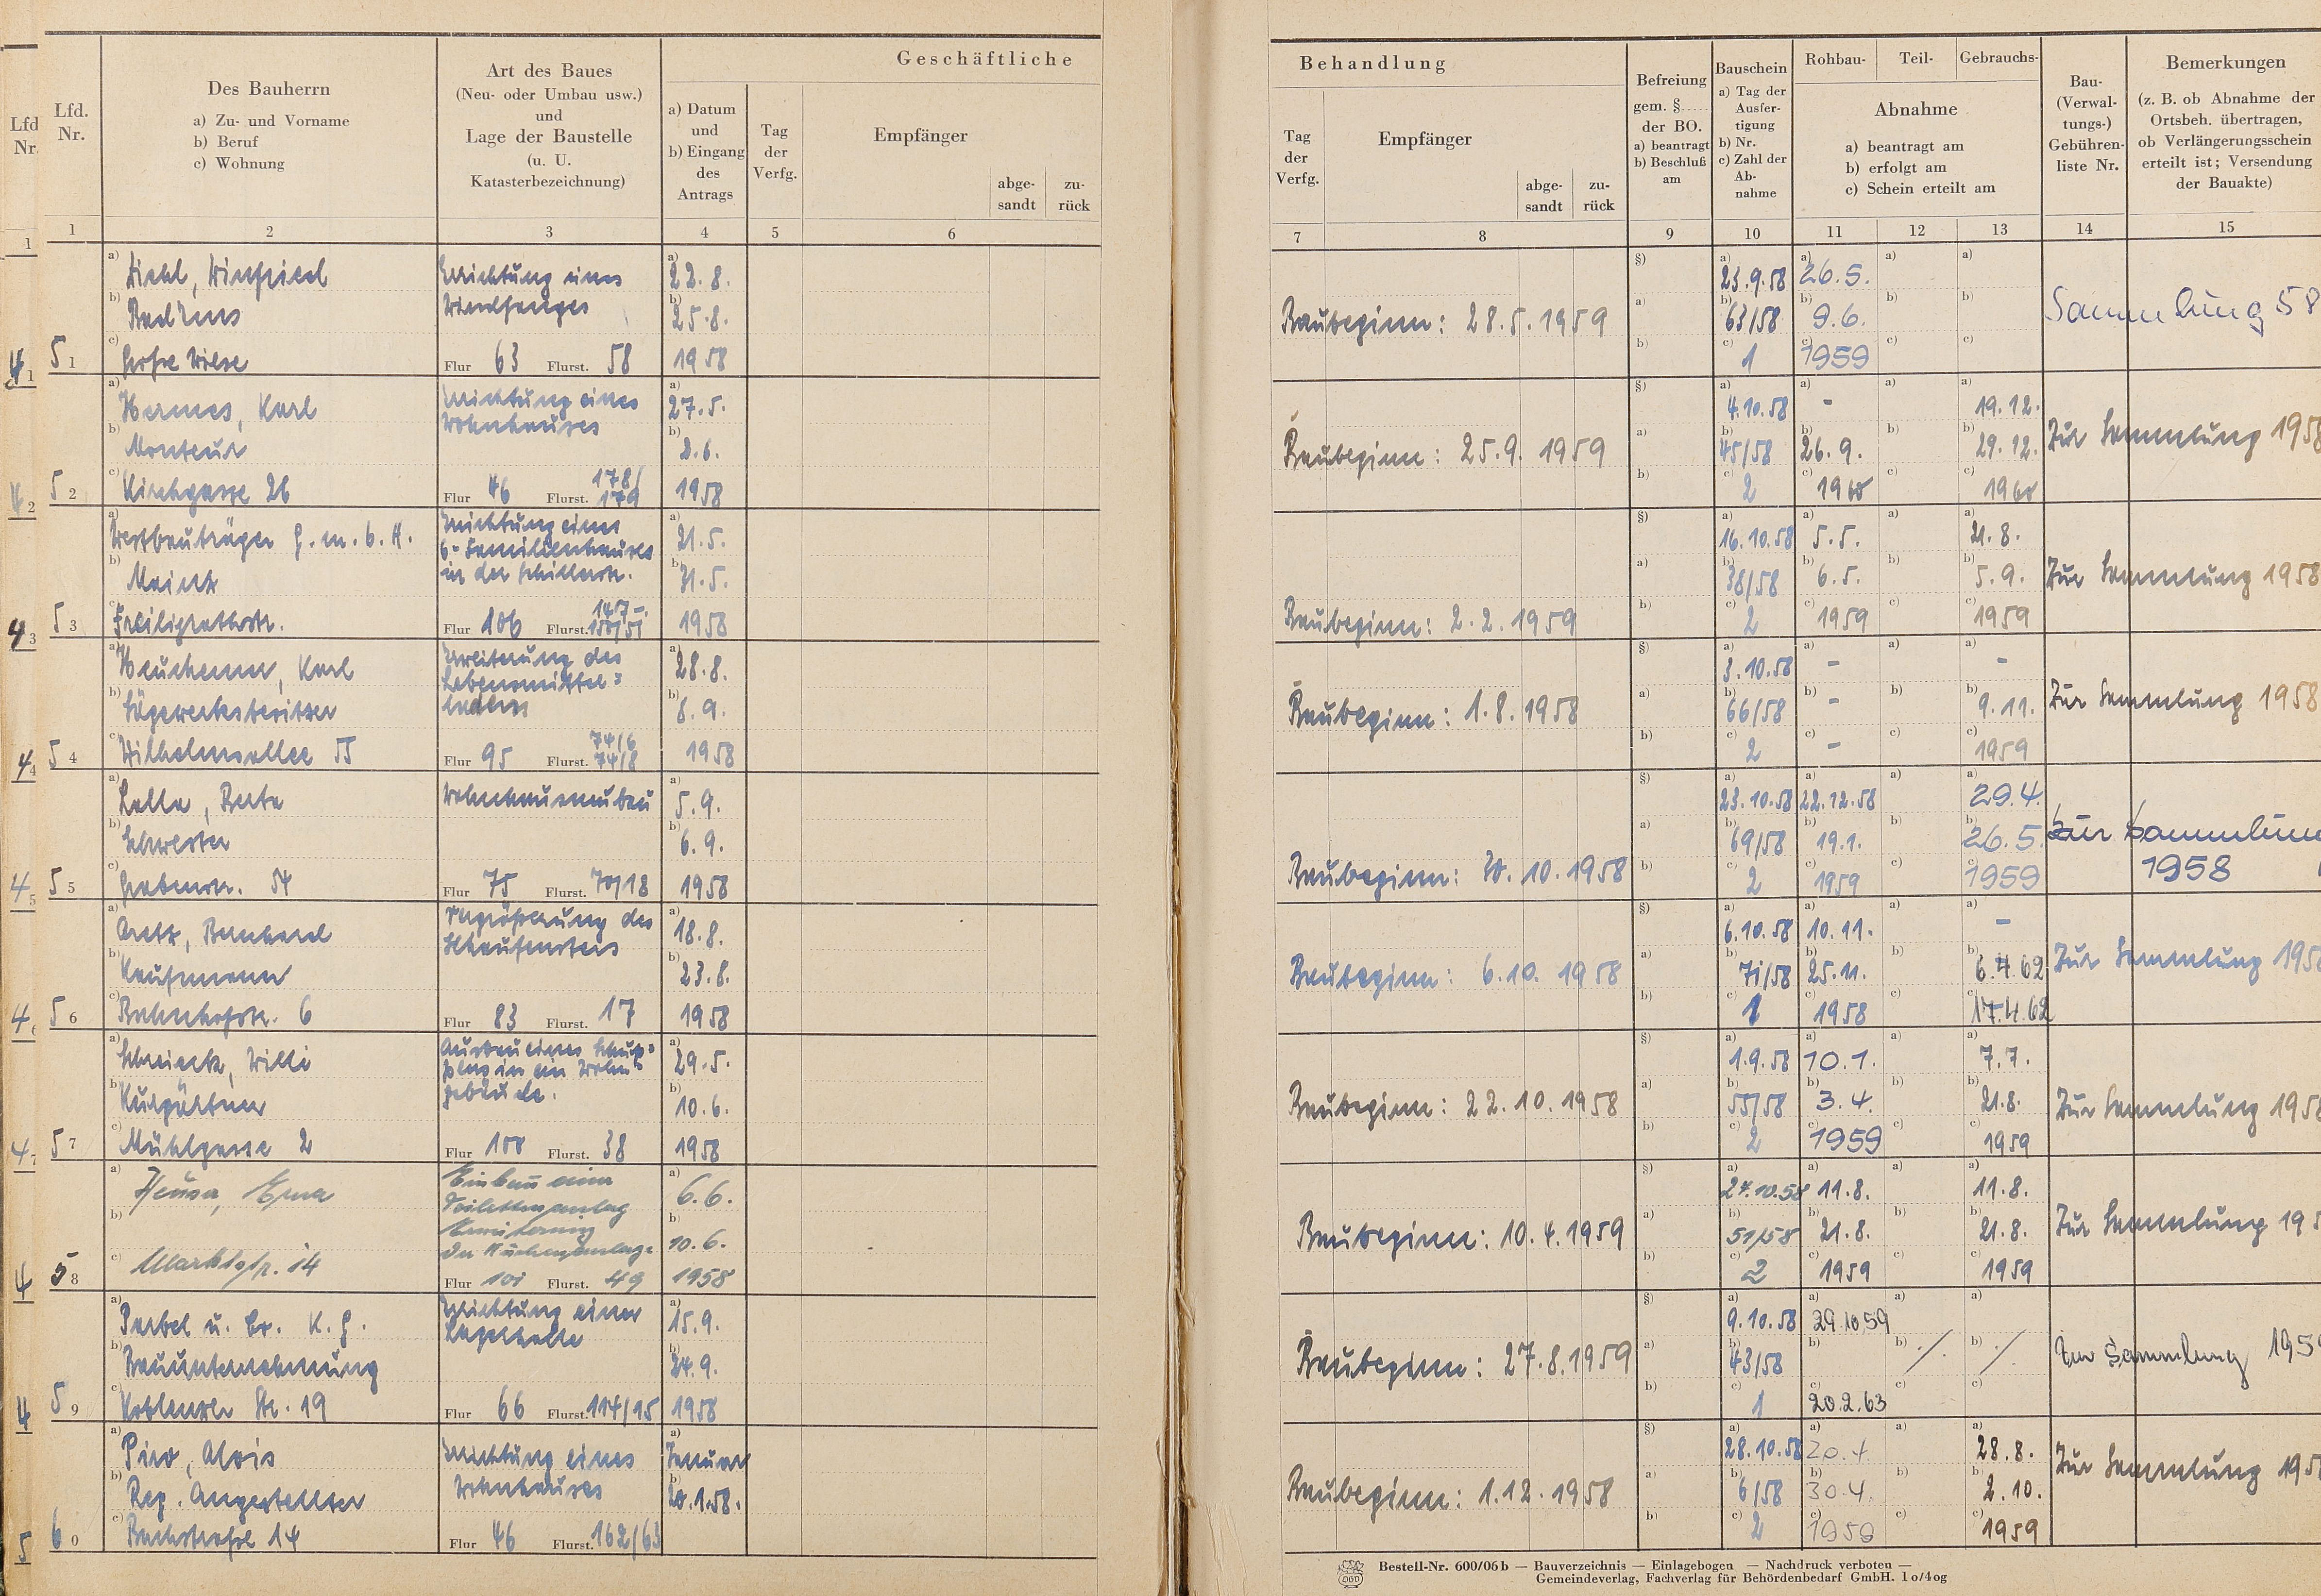 Geschäftliche
Behandlung
Lfd
Nr.
Lfd.
Nr.
Des Bauherrn
a) Zu- und Vorname
b) Beruf
c) Wohnung
Art des Baues
(Neu- oder Umbau usw.)
und
Lage der Baustelle
(u. U.
Katasterbezeichnung)
a) Datum
und
b) Eingang
des
Antrags
Tag
der
Verfg.
Empfänger
abge-
sandt
zu-
rück
Tag
der
Verfg.
Empfänger
abge-
sandt
zu-
rück
Befreiung
gem. §
der BO.
a) beantragt
b) Beschluß
am
Bauschein
a) Tag der
Ausfer-
tigung
b) Nr.
c) Zahl der
Ab-
nahme
Rohbau- Teil- Gebrauchs-
Abnahme
a) beantragt am
b) erfolgt am
c) Schein erteilt am
Bau-
(Verwal-
tungs-)
Gebühren-
liste Nr.
Bemerkungen
(z. B. ob Abnahme der
Ortsbeh. übertragen,
ob Verlängerungsschein
erteilt ist; Versendung
der Bauakte)
1 1 2 3 4 5 6 7 8 9 10 11 12 13 14 15
a) Diehl, Winfried Errichtung eines a) 22.8. §) a) 23.9.58 a) 26.5. a) a)
b) Windfanges b) 25.8. Baubeginn: 28.5.1959 a) b) 63/58 b) 9.6. b) b) Sammlung 58
41 51 c) Große Wiese Flur 63 Flurst. 58 1958 b) c) 1 c) 1959 c) c)
a) Hermes, Karl Errichtung eines a) 27.5. §) a) 4.10.58 a) - a) a) 19.12.
b) Monteur Wohnhauses b) 2.6. Baubeginn: 25.9.1959 a) b) 45/58 b) 26.9. b) b) 29.12. Zur Sammlung 1958
42 52 c) Kirchgasse 26 Flur 46 Flurst. 178/179 1958 b) c) 2 c) 1960 c) c) 1960
a) Westbauträger G.m.b.H. Errichtung eines a) 21.5. §) a) 16.10.58 a) 5.5. a) a) 21.8.
6-Familienhauses
b) in der Schillerstr. b) 31.5. a) b) 38/58 b) 6.5. b) b) 5.9. Zur Sammlung 1958
43 53 c) Freiligrathstr. Flur 106 Flurst. 1958 Baubeginn: 2.2.1959 b) c) 2 c) 1959 c) c) 1959
a) Karl Erweiterung des a) 28.8. §) a) 3.10.58 a) - a) a) -
Lebensmittel=
b) Sägewerksbesitzer ladens b) 8.9. Baubeginn: 1.8.1958 a) b) 66/58 b) - b) b) 9.11. Zur Sammlung 1958
44 54 c) Wilhelmsallee 55 Flur 95 Flurst. 74/6 74/8 1958 b) c) 2 c) - c) c) 1959
a) Wohnhausneubau a) 5.9. §) a) 23.10.58 a) 22.12.58 a) a) 29.4.
b) Schwester b) 6.9. a) b) 69/58 b) 19.1. b) b) 26.5. Zur Sammlun
45 55 c) Grabenstr. 54 Flur 75 Flurst. 70/18 1958 Baubeginn: 30.10.1958 b) c) 2 c) 1959 c) c) 1959 1958
a) Bernhard Vergrößerung des a) 18.8. §) a) 6.10.58 a) 10.11. a) a) -
b) Kaufmann Schaufensters b) 23.8. Baubeginn: 6.10.1958 a) b) 71/58 b) 25.11. b) b) 6.4.62 Zur Sammlung 195
46 56 c) Bahnhofstr. 6 Flur 83 Flurst. 17 1958 b) c) 1 c) 1958 c) c) 17.4.62
a) Willi Ausbau eines Schup= a) 29.5. §) a) 1.9.58 a) 10.1. a) a) 7.7.
pens in ein Wohn=
b) gebäude. b) 10.6. Baubeginn: 22.10.1958 a) b) 55/58 b) 3.4. b) b) 21.8. Zur Sammlung 1958
47 57 c) Mühlgasse 2 Flur 100 Flurst. 38 1958 b) c) 2 c) 1959 c) c) 1959
a) Heuser, Erna Einbau einer a) 6.6. §) a) 27.10.58 a) 11.8. a) a) 11.8.
Toilettenanlag
b) Erweiterung b) 10.6. Baubeginn: 10.4.1959 a) b) 51/58 b) 21.8. b) b) 21.8. Zur Sammlung 195
der Küchenanlage
4 58 c) Marktstr. 14 Flur 101 Flurst. 49 1958 b) c) 2 c) 1959 c) c) 1959
a) u. Co. K.G. Errichtung einer a) 15.9. §) a) 9.10.58 a) 29.10.59 a) a)
b) Bauunternehmung Lagerhalle b) 24.9. Baubeginn: 27.8.1959 a) b) 43/58 b) b) ./. b) ./. Zur Sammlung 195
4 59 c) Koblenzer Str. 19 Flur 66 Flurst. 114/15 1958 b) c) 1 c) 20.2.63 c) c)
a) Piro, Alois Errichtung eines a) Januar §) a) 28.10.58 a) 20.4. a) a) 28.8.
b) Reg. Angestellter Wohnhauses b) 20.1.58. Baubeginn: 1.12.1958 a) b) 6/58 b) 30.4. b) b) 2.10. Zur Sammlung 195
5 60 c) Bachstraße 14 Flur 46 Flurst. 162/63 b) c) 2 c) 1959 c) c) 1959
Bestell-Nr. 600/06b — Bauverzeichnis — Einlagebogen — Nachdruck verboten —
Gemeindeverlag, Fachverlag für Behördenbedarf GmbH. 1o/4og